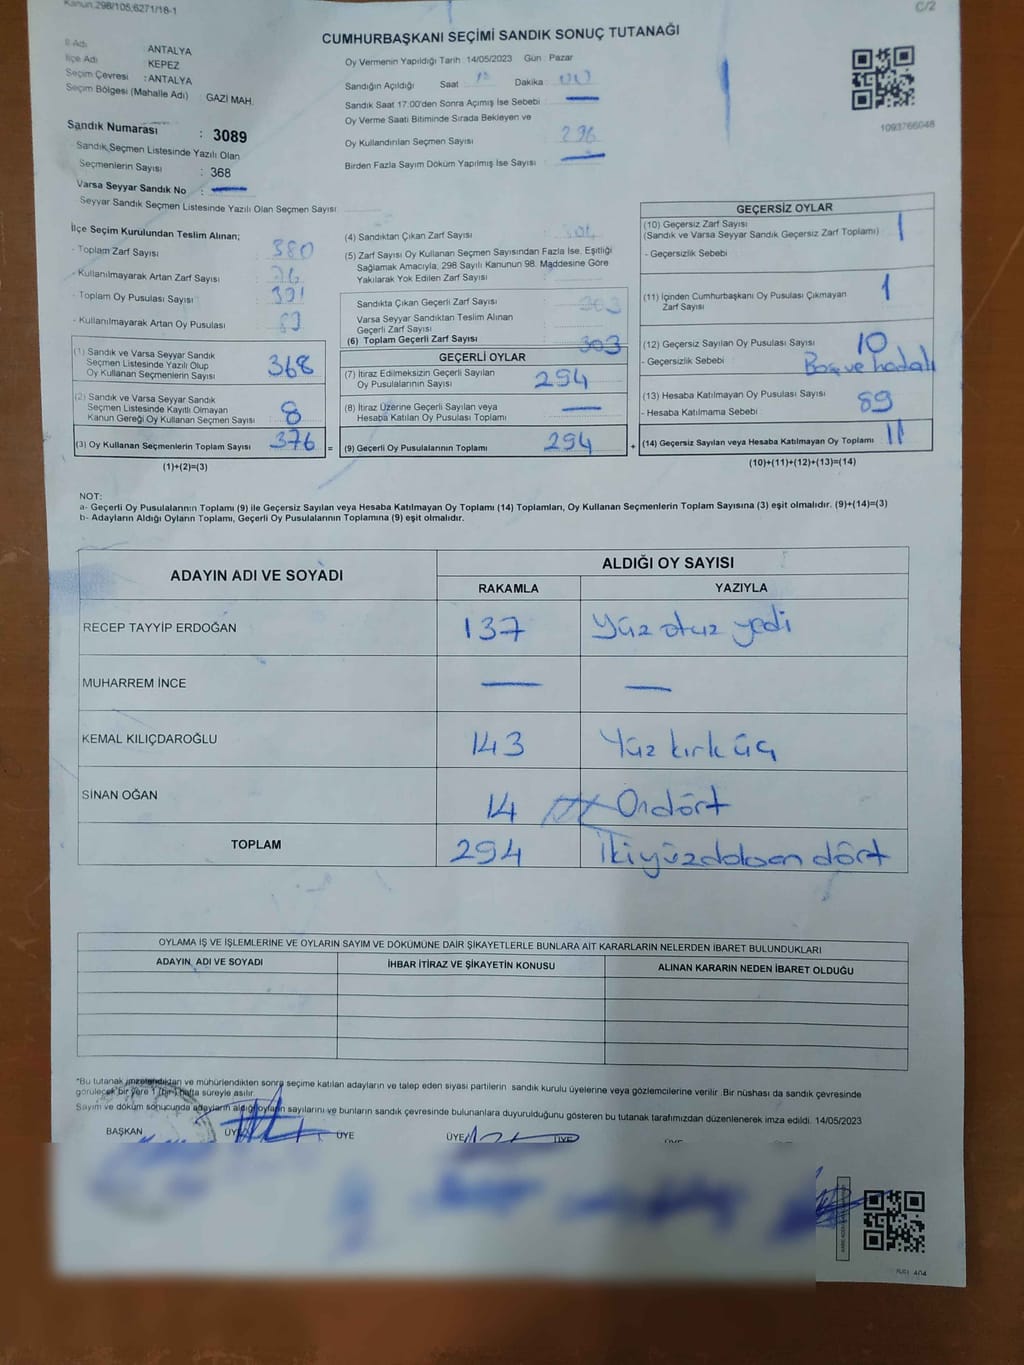 Kanun.298/105;6271/18-1
C/2
CUMHURBAŞKANI SEÇİMİ SANDIK SONUÇ TUTANAĞI
İl Adı ANTALYA
İlçe Adı KEPEZ
Seçim Çevresi : ANTALYA
Seçim Bölgesi (Mahalle Adı) GAZİ MAH.
Oy Vermenin Yapıldığı Tarih : 14/05/2023 Gün : Pazar
Sandığın Açıldığı Saat Dakika
Sandık Saat 17:00'den Sonra Açımış İse Sebebi
Oy Verme Saati Bitiminde Sırada Bekleyen ve
Oy Kullandırılan Seçmen Sayısı 296
Birden Fazla Sayım Döküm Yapılmış İse Sayısı
1093766048
Sandık Numarası : 3089
- Sandık Seçmen Listesinde Yazılı Olan
Seçmenlerin Sayısı : 368
Varsa Seyyar Sandık No :
Seyyar Sandık Seçmen Listesinde Yazılı Olan Seçmen Sayısı
İlçe Seçim Kurulundan Teslim Alınan;
- Toplam Zarf Sayısı 380
- Kullanılmayarak Artan Zarf Sayısı 76
- Toplam Oy Pusulası Sayısı 391
- Kullanılmayarak Artan Oy Pusulası
(1) Sandık ve Varsa Seyyar Sandık
Seçmen Listesinde Yazılı Olup
Oy Kullanan Seçmenlerin Sayısı 368
(2) Sandık ve Varsa Seyyar Sandık
Seçmen Listesinde Kayıtlı Olmayan
Kanun Gereği Oy Kullanan Seçmen Sayısı 8
(3) Oy Kullanan Seçmenlerin Toplam Sayısı 376 =
(1)+(2)=(3)
(4) Sandıktan Çıkan Zarf Sayısı 304
(5) Zarf Sayısı Oy Kullanan Seçmen Sayısından Fazla İse, Eşitliği
Sağlamak Amacıyla, 298 Sayılı Kanunun 98. Maddesine Göre
Yakılarak Yok Edilen Zarf Sayısı
Sandıkta Çıkan Geçerli Zarf Sayısı 303
Varsa Seyyar Sandıktan Teslim Alınan
Geçerli Zarf Sayısı
(6) Toplam Geçerli Zarf Sayısı 303
GEÇERLİ OYLAR
(7) İtiraz Edilmeksizin Geçerli Sayılan
Oy Pusulalarının Sayısı 294
(8) İtiraz Üzerine Geçerli Sayılan veya
Hesaba Katılan Oy Pusulası Toplamı
(9) Geçerli Oy Pusulalarının Toplamı 294 +
GEÇERSİZ OYLAR
(10) Geçersiz Zarf Sayısı 1
(Sandık ve Varsa Seyyar Sandık Geçersiz Zarf Toplamı)
- Geçersizlik Sebebi
(11) İçinden Cumhurbaşkanı Oy Pusulası Çıkmayan 1
Zarf Sayısı
(12) Geçersiz Sayılan Oy Pusulası Sayısı 10
- Geçersizlik Sebebi Boş ve hatalı
(13) Hesaba Katılmayan Oy Pusulası Sayısı 89
- Hesaba Katılmama Sebebi
(14) Geçersiz Sayılan veya Hesaba Katılmayan Oy Toplamı 11
(10)+(11)+(12)+(13)=(14)
NOT:
a- Geçerli Oy Pusulalarının Toplamı (9) ile Geçersiz Sayılan veya Hesaba Katılmayan Oy Toplamı (14) Toplamları, Oy Kullanan Seçmenlerin Toplam Sayısına (3) eşit olmalıdır. (9)+(14)=(3)
b- Adayların Aldığı Oyların Toplamı, Geçerli Oy Pusulalarının Toplamına (9) eşit olmalıdır.
ADAYIN ADI VE SOYADI ALDIĞI OY SAYISI
RAKAMLA YAZIYLA
RECEP TAYYİP ERDOĞAN 137 Yüz otuz yedi
MUHARREM İNCE
KEMAL KILIÇDAROĞLU 143 Yüz kırk üç
SİNAN OĞAN 14 Ondört
TOPLAM 294 İkiyüzdoksan dört
OYLAMA İŞ VE İŞLEMLERİNE VE OYLARIN SAYIM VE DÖKÜMÜNE DAİR ŞİKAYETLERLE BUNLARA AİT KARARLARIN NELERDEN İBARET BULUNDUKLARI
ADAYIN ADI VE SOYADI İHBAR İTİRAZ VE ŞİKAYETİN KONUSU ALINAN KARARIN NEDEN İBARET OLDUĞU
*Bu tutanak imzalandıktan ve mühürlendikten sonra seçime katılan adayların ve talep eden siyasi partilerin sandık kurulu üyelerine veya gözlemcilerine verilir. Bir nüshası da sandık çevresinde
görülecek bir yere 1 (bir) hafta süreyle asılır.
Sayım ve döküm sonucunda adayların aldığı oyların sayılarını ve bunların sandık çevresinde bulunanlara duyurulduğunu gösteren bu tutanak tarafımızdan düzenlenerek imza edildi. 14/05/2023
BAŞKAN ÜYE ÜYE ÜYE ÜYE